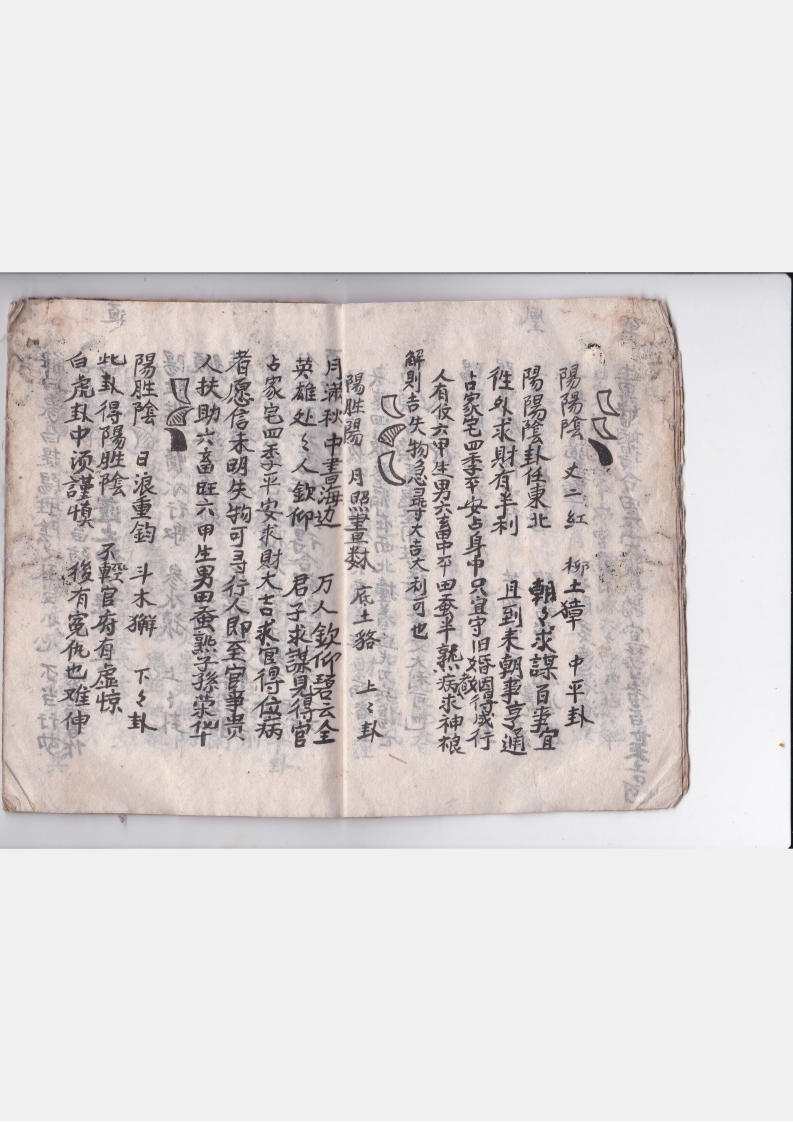 陽陽陰 丈二紅 柳土獐 中平卦
陽陽陰卦任東北 朝々求謀百事宜
徃外求財有半利 且到未朝事亨通
占家宅四季平安占身中只宜守旧婚姻得成行
人有仅六甲生男六畜中平田蚕半熟病求神根
解則吉失物急尋大吉大利可也
陽胜陽 月照畫数 底土狢 上々卦
月滿秋中書海边 万人欽仰碧云全
英雄处々人欽仰 君子求謀見得官
占家宅四季平安求財大吉求官得位病
者愿信未明失物可寻行人即至官事贵
人扶助六畜旺六甲生男田蚕熟子孫荣华
陽胜陰 日浪重鈞 斗木獬 下々卦
此卦得陽胜陰 不輕官府有虚惊
白虎卦中须謹慎 後有冤仇也难伸